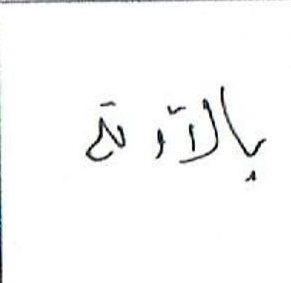 بالآونة